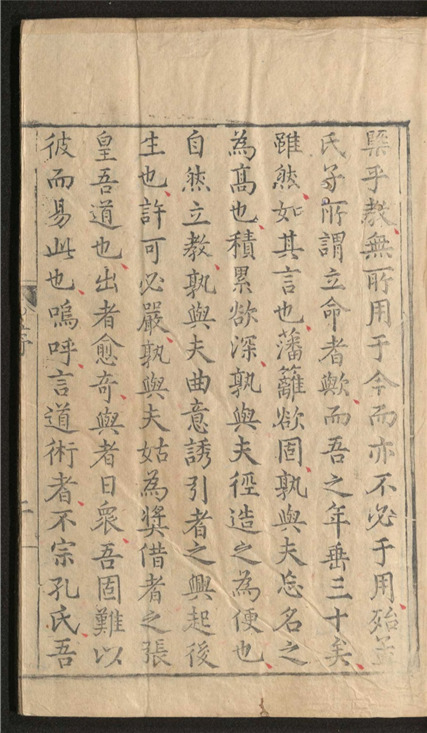 槩乎教無所用于今而亦不必于用殆孟
氏子所謂立命者歟而吾之年垂三十矣
雖然如其言也藩籬欲固孰與夫忘名之
為髙也積累欲深孰與夫徑造之為便也
自然立教孰與夫曲意誘引者之興起後
生也許可必嚴孰與夫姑為奬借者之張
皇吾道也出者愈竒與者日衆吾固難以
彼而易此也嗚呼言道術者不宗孔氏吾